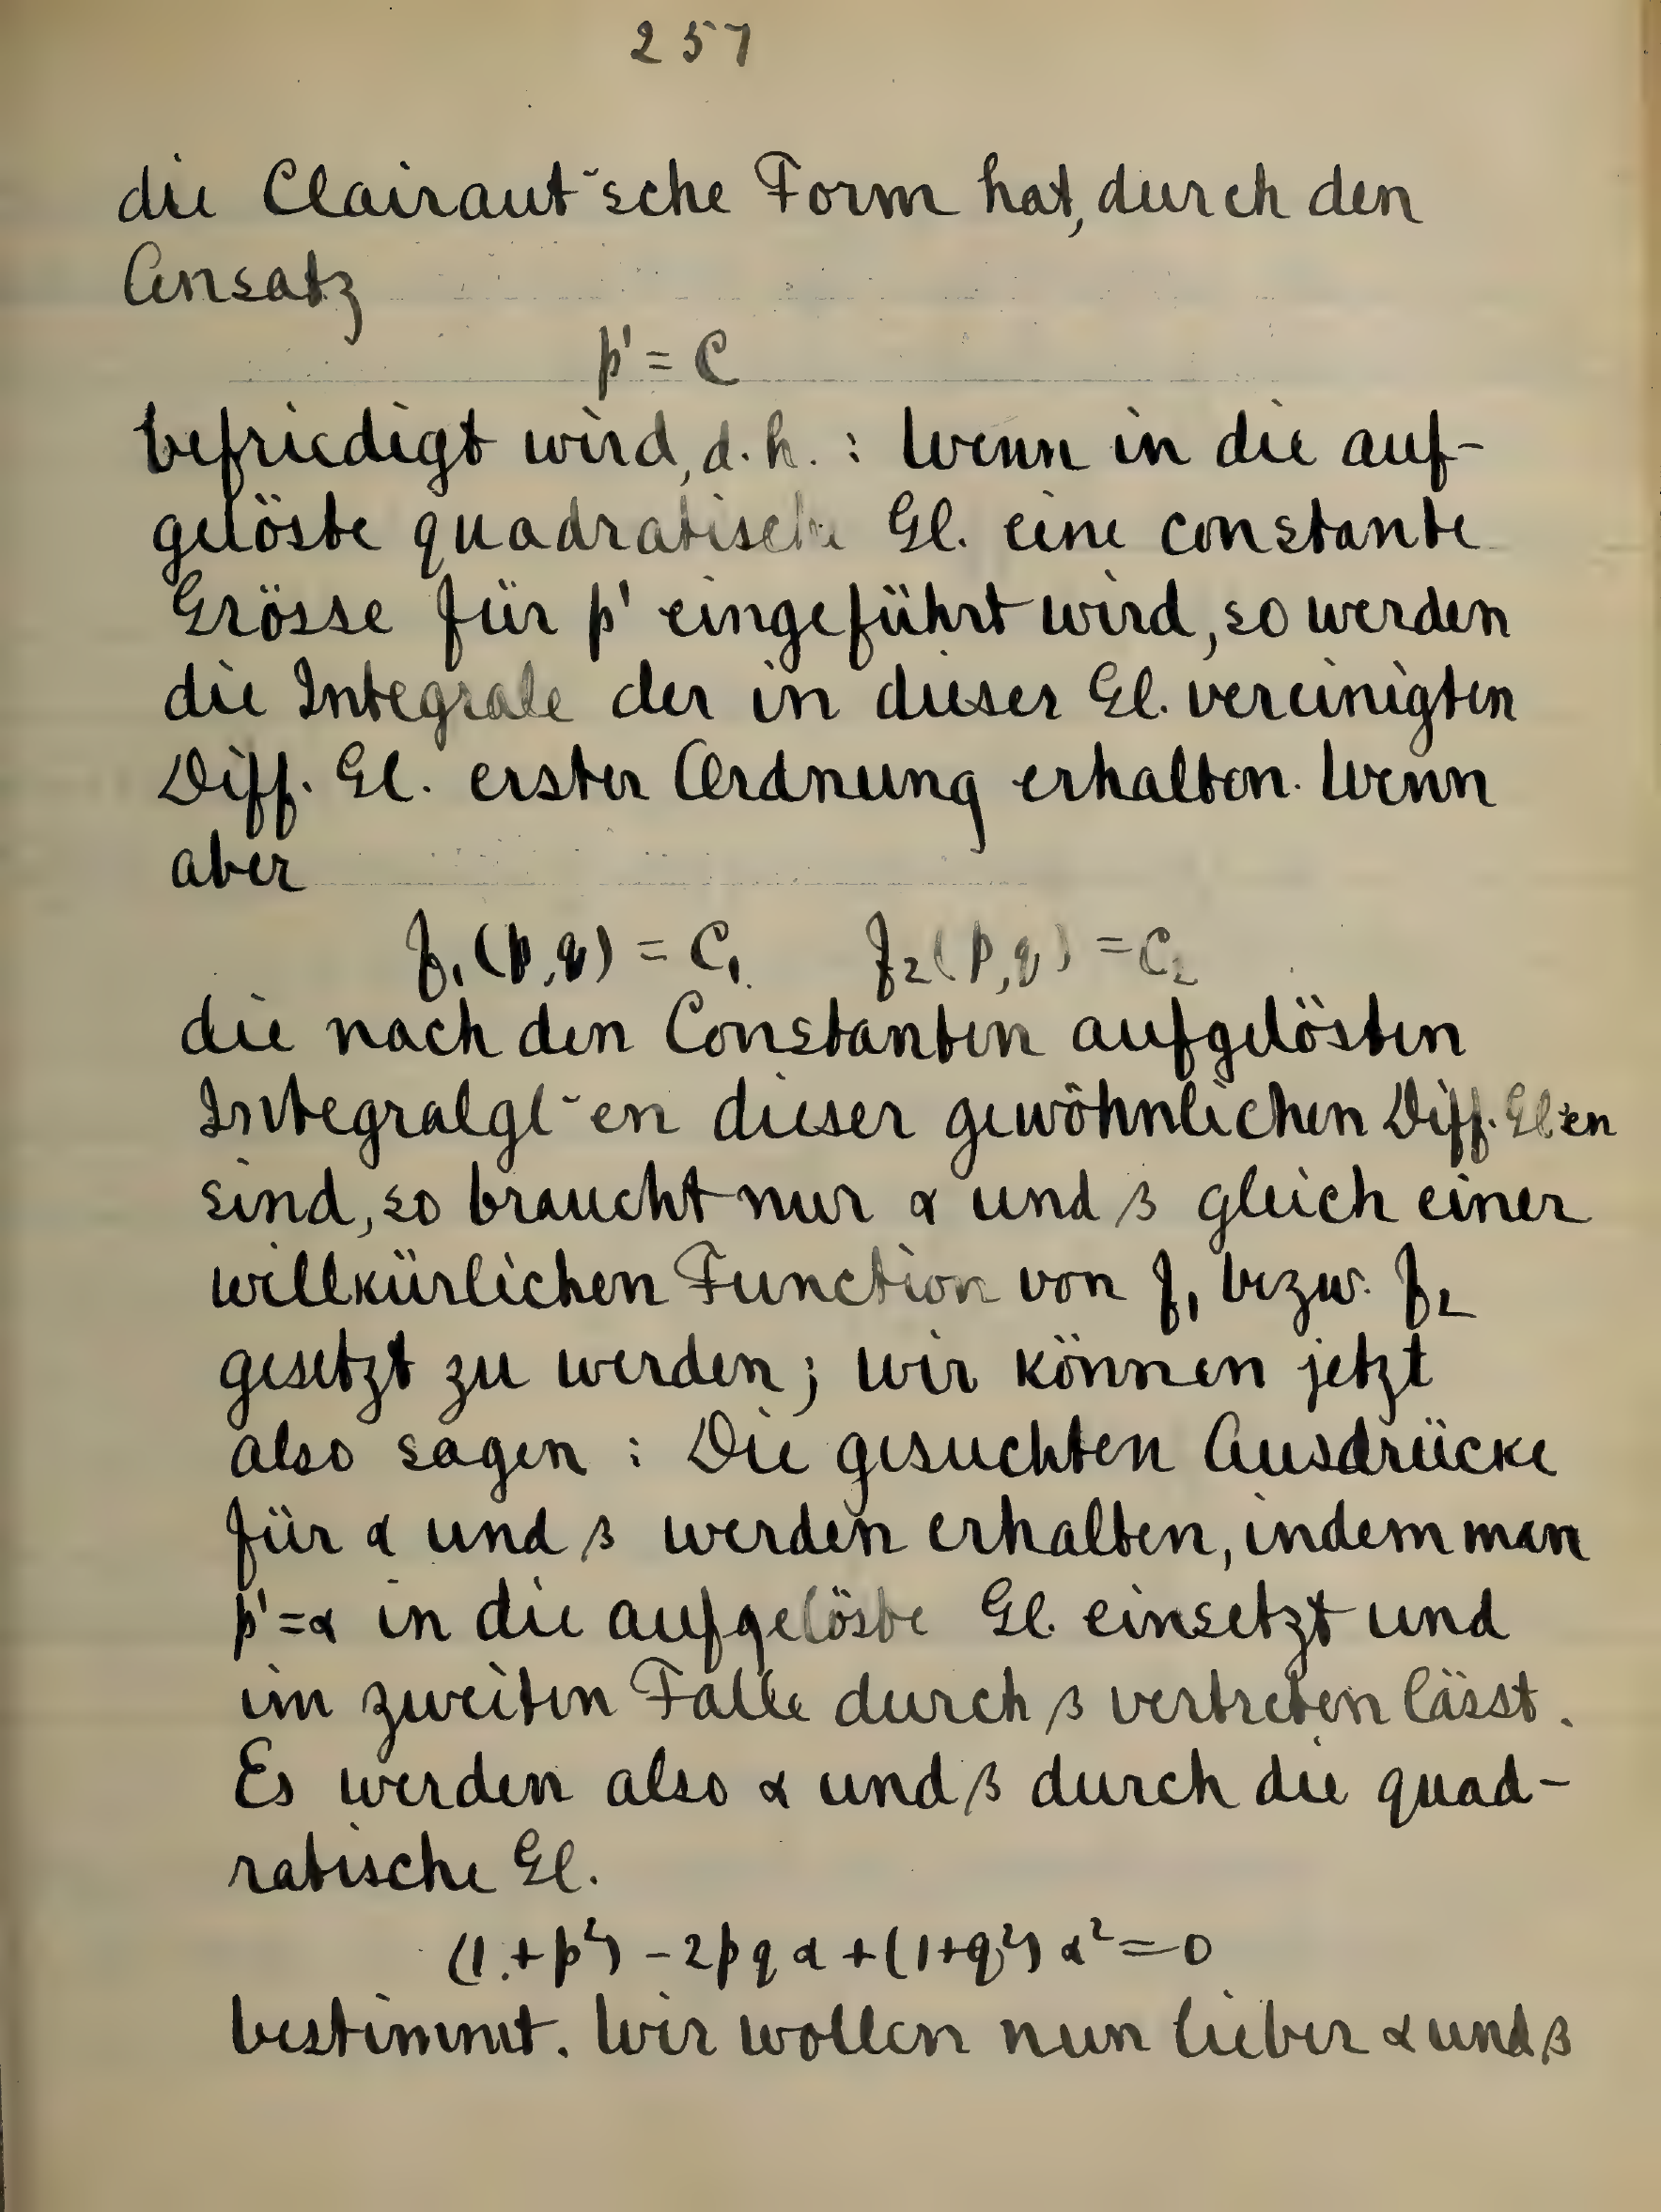 257
die Clairaut'sche Form hat, durch den
Ansatz
p' = C
befriedigt wird, d. h. : Wenn in die auf-
gelöste quadratische Gl. eine constante
Grösse für p' eingeführt wird, so werden
die Integrale der in dieser Gl. vereinigten
Diff. Gl. erster Ordnung erhalten. Wenn
aber
f₁(p,q) = C₁ f₂(p,q) = C₂
die nach den Constanten aufgelösten
Integralgl-en dieser gewöhnlichen Diff. Gl-en
sind, so braucht nur α und β gleich einer
willkürlichen Function von f₁ bezw. f₂
gesetzt zu werden; wir können jetzt
also sagen : Die gesuchten Ausdrücke
für α und β werden erhalten, indem man
p'=α in die aufgelöste Gl. einsetzt und
im zweiten Falle durch β vertreten lässt.
Es werden also α und β durch die quad-
ratische Gl.
(1+p²) - 2pqα + (1+q²) α² = 0
bestimmt. Wir wollen nun lieber α und β